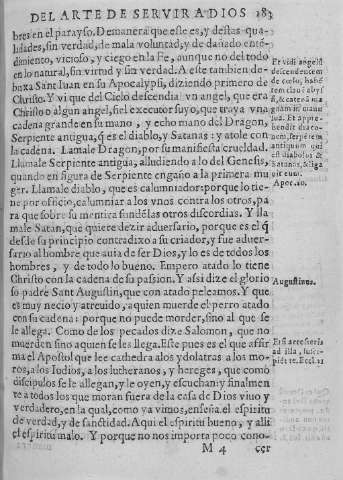 DEL ARTE DE SERVIR A DIOS 183
bres en el parayso. Demanera que este es, y destas qua-
lidades, sin verdad, de mala voluntad, y de dañado entẽ-
dimiento, vicioso, y ciego en la Fe, aunque no del todo
en lo natural, sin virtud y sin verdad. A este tambien de-
buxa San Iuan en su Apocalypsi, diziendo primero de
Christo. Y vi que del Cielo descendia vn angel, que era
Christo o algun angel, fiel executor suyo, que traya vna
cadena grande en su mano, y echo mano del Dragon,
Serpiente antigua, q̃ es el diablo, y Satanas: y atole con
la cadena. Llamale Dragon, por su manifiesta crueldad.
Llamale Serpiente antigua, alludiendo a lo del Genesis,
quando en figura de Serpiente engaño a la primera mu
ger. Llamale diablo, que es calumniador: porque lo tie-
ne por oficio, calumniar a los vnos contra los otros, pa
ra que sobre su mentira fundẽ las otras discordias. Y lla
male Satan, que quiere dezir aduersario, porque es el q̃
desde su principio contradixo a su criador, y fue aduer-
sario al hombre que auia de ser Dios, y lo es de todos los
hombres, y de todo lo bueno. Empero atado lo tiene
Christo con la cadena de su passion. Y assi dize el glorio
so padre Sant Augustin, que con atado peleamos. Y que
es muy necio y atreuido, a quien muerde el perro atado
con su cadena: porque no puede morder, sino al que se
le allega. Como de los pecados dize Salomon, que no
muerden sino aquien se les llega. Este pues es el que affir
ma el Apostol que lee cathedra a los ydolatras a los mo-
ros, a los Iudios, a los lutheranos, y hereges, que como
discipulos se le allegan, y le oyen, y escuchan: y finalmen
te a todos los que moran fuera de la casa de Dios viuo y
verdadero, en la qual, como ya vimos, enseña el espiritu
de verdad, y de sanctidad. Aqui el espiritu bueno, y alli
el espiritu malo. Y porque no nos importa poco cono-
M 4 cer
Et vidi angelũ
descendentem
de cœlo, habẽ
tem clauẽ abys
si, & catenã ma
gnam in manu
sua. Et appre-
hendit draco-
nem, serpẽtem
antiquum qui
est diabolus &
Satanas, & liga
uit eum.
Apoc. 20.
Augustinus.